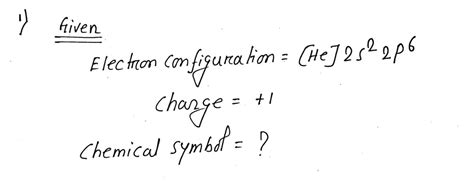 1) Given
Electron configuration = [He] 2s² 2p⁶
Charge = +1
Chemical symbol = ?